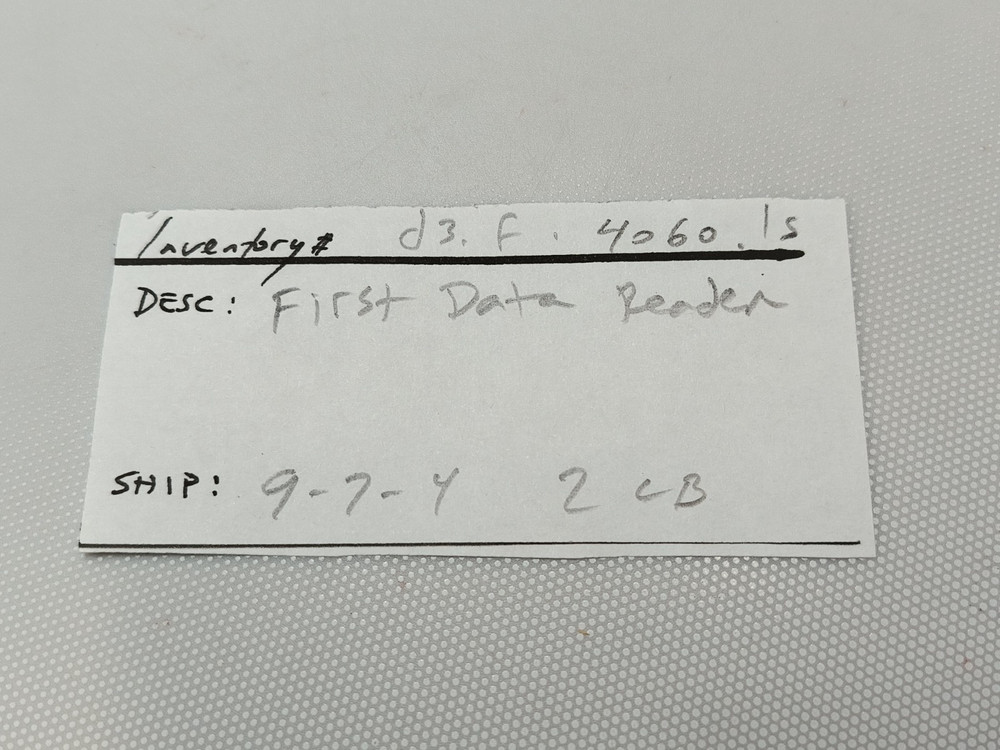 Inventory# d3.F.4060.1s
DESC: First Data Reader
SHIP: 9-7-4 2 LB